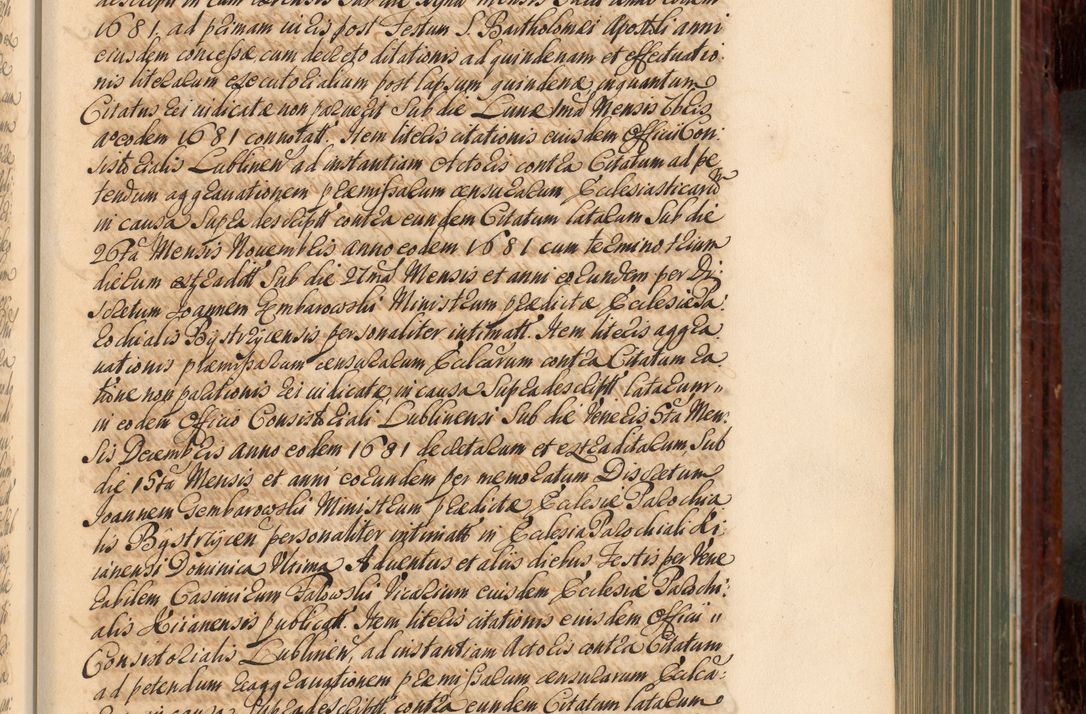 1681, ad primam iuris post Festum S. Bartholomæi Apostoli anni
eiusdem concessæ cum decreto citationis ad quindenam et effectuatio
nis literarum executorialium post lapsum quindenæ inquantum
Citatus rei iudicatæ non paruerit Sub die Lunæ 1ma Mensis 8bris
ao eodem 1681 connotatt. Item literis citationis eiusdem Officii Con¬
sistorialis Lublinen ad instantiam Actoris contra Citatum ad pe
tendum aggravationem præmissarum censurarum Ecclesiasticaru
in causa Supra descriptt contra eundem Citatum latarum Sub die
26ta Mensis Novembris anno eodem 1681 cum termino trium
dierum extraditt Sub die 27ma Mensis et anni eorundem per Di¬
scretum Joannem Gembarowski Ministrum prædictæ Ecclesiæ Pa¬
rochialis Bystrzycensis personaliter intimatt. Item literis aggra
vationis præmissarum censurarum Ecclcarum contra Citatum ra
tione non paritionis rei iudicatæ, in causa Supra descriptt latarum
in eodem Officio Consistoriali Lublinensi Sub die Veneris 5ta Men¬
sis Decembris anno eodem 1681 decretarum et extraditarum, Sub
die 15ta Mensis et anni eorundem per memoratum Discretum
Joannem Gembarowski Ministrum prædictæ Ecclesiæ Parochia
lis Bystrzycen personaliter intimatt in Ecclesia Parochiali Ki¬
ianensi Dominica Ultima Adventus et aliis diebus Festis per Vene
rabilem Casimirum Vicarium eiusdem Ecclesiæ Parochi¬
alis Kiianensis publicatt. Item literis citationis eiusdem Officii
Consistorialis Lublinen, ad instantiam Actoris contra Citatum
ad petendum reaggravationem præmissarum censurarum Ecclca¬
in causa Supra descriptt contra eundem Citatum latarum